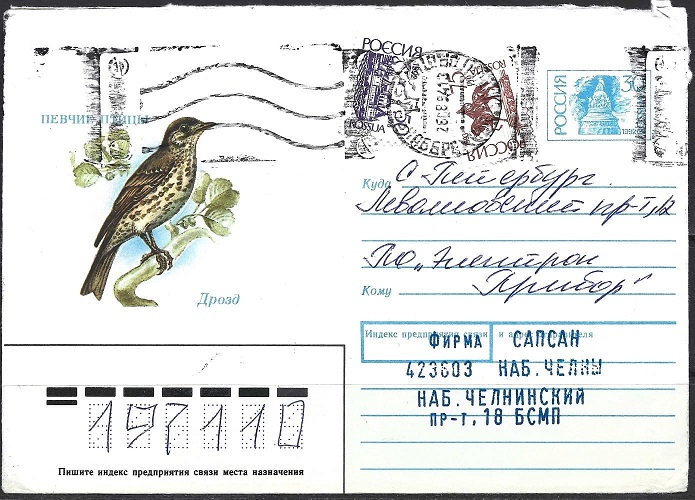 ПЕВЧИЕ ПТИЦЫ
Дрозд
РОССИЯ
ROSSIJA
РОССИЯ
РОССИЯ
1992
Куда С-Петербург
пр-т,
ПО „Электрон
Кому Прибор"
Индекс предприятия связи и адрес отправителя
ФИРМА САПСАН
423603 НАБ. ЧЕЛНЫ
НАБ. ЧЕЛНИНСКИЙ
ПР-Т, 18 БСМП
197110
Пишите индекс предприятия связи места назначения